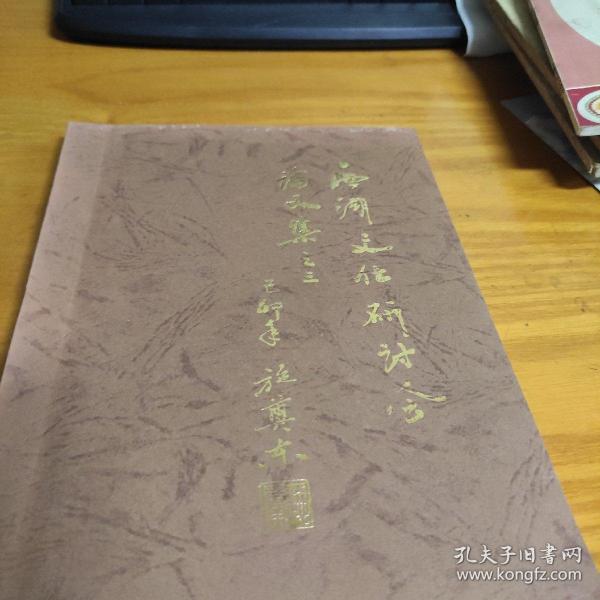 西湖文化研讨会
论文集之三
己卯年 施奠东
孔夫子旧书网
www.kongfz.com